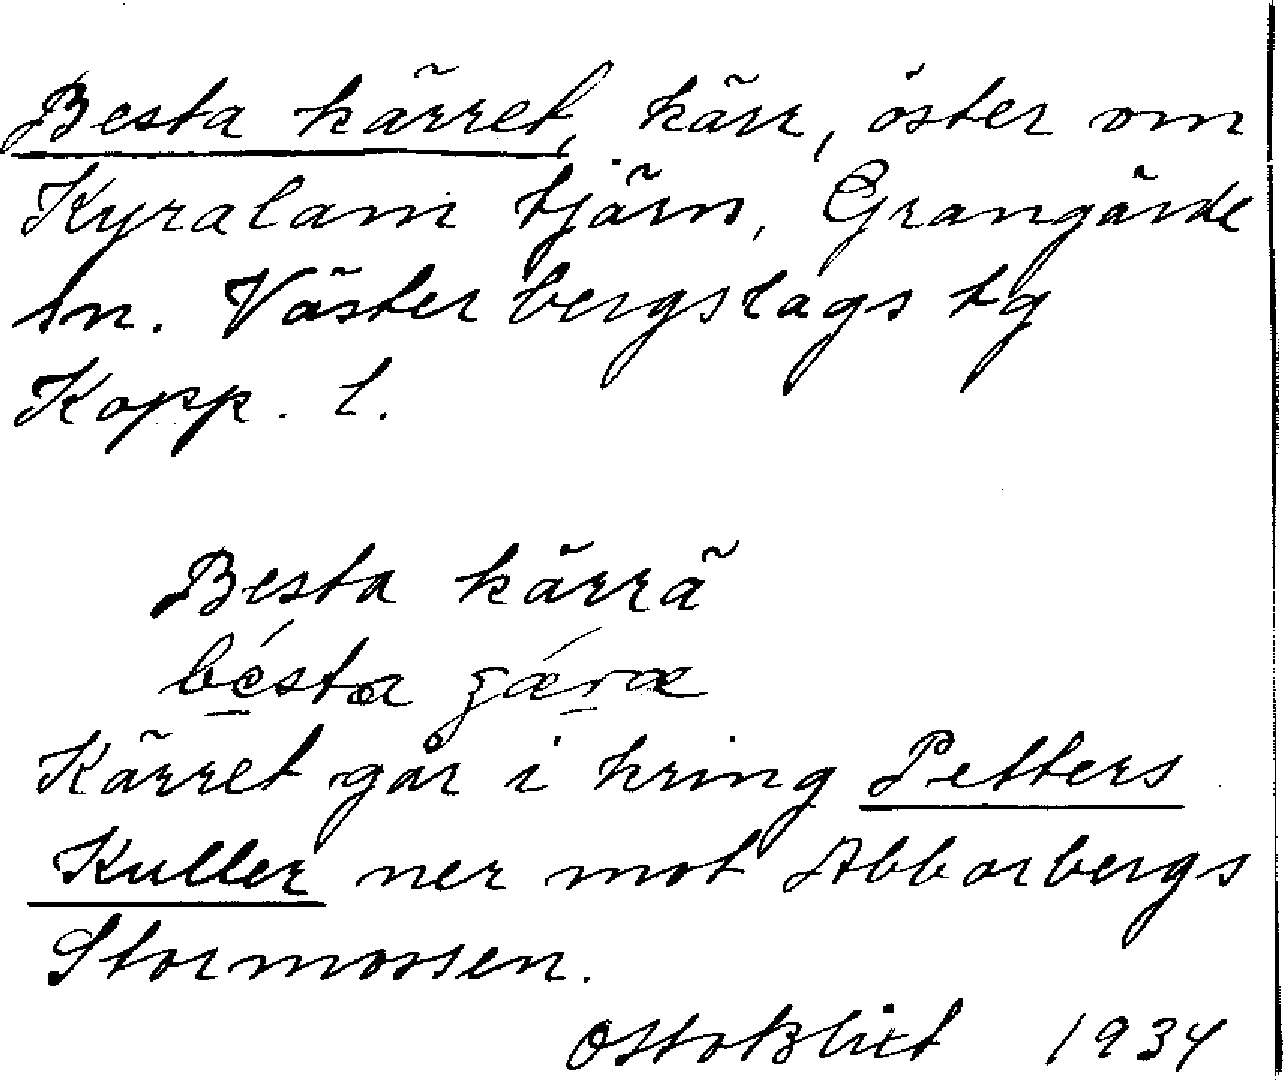 Besta kärret, kärr, öster om
Kyralam tjärn, Grangärde
sn. Västerbergslags tg
Kopp. l.
Besta kärrä
bésta
Kärret går i kring Petters
Kuller ner mot Abborbergs
Stormossen.
Otto Blixt 1934